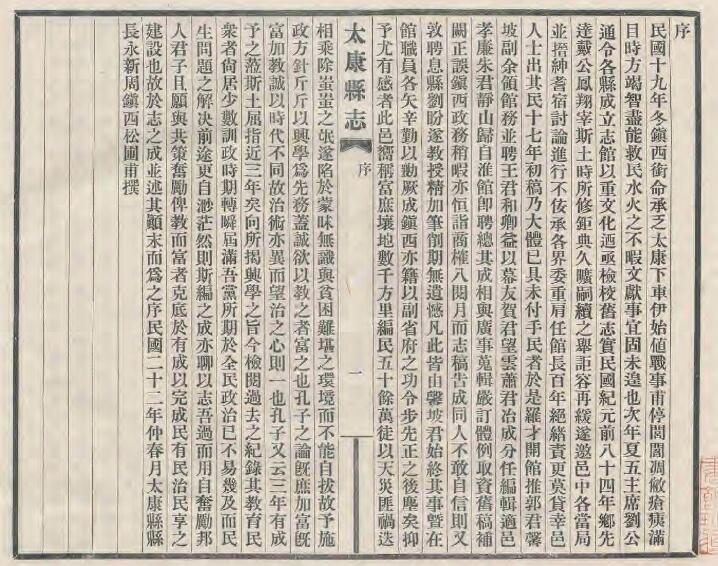 序
民國十九年冬鎭西銜命承乏太康下車伊始値戰事甫停閭閻凋敝瘡痍滿
目時方竭智盡能救民水火之不暇文獻事宜固未遑也次年夏五主席劉公
通令各縣成立志館以重文化迺亟檢校舊志實民國紀元前八十四年鄉先
達戴公鳳翔宰斯土時所修鉅典久曠嗣續之舉詎容再緩遂邀邑中各當局
並搢紳耆宿討論進行不佞承各界委重肩任館長百年絕緒責更莫貸幸邑
人士出其民十七年初稿乃大體已具未付手民者於是羅才開館推郭君馨
坡副余領館務並聘王君和卿益以幕友賀君望雲蕭君冶成分任編輯適邑
孝廉朱君靜山歸自淮館卽聘總其成相與廣事蒐輯嚴訂體例取資舊稿補
闕正誤鎭西政務稍暇亦恒詣商榷八閱月而志稿告成同人不敢自信則又
敦聘息縣劉盼遂敎授精加筆削期無遺憾凡此皆由馨坡君始終其事曁在
館職員各矢辛勤以勷厥成鎭西亦籍以副省府之功令步先正之後塵矣抑
予尤有感者此邑嚮稱富庶壤地數千方里編民五十餘萬徒以天災匪禍迭
太康縣志
序
一
相乘除蚩蚩之氓遂陷於蒙昧無識與貧困難堪之環境而不能自拔故予施
政方針斤斤以興學爲先務蓋誠欲以敎之者富之也孔子之論旣庶加富旣
富加敎誠以時代不同故治術亦異而望治之心則一也孔子又云三年有成
予之蒞斯土屈指近三年矣向所揭興學之旨今檢閱過去之紀錄其敎育民
衆者尙居少數訓政時期轉瞬屆滿吾黨所期於全民政治已不易幾及而民
生問題之解決前途更自渺茫然則斯編之成亦聊以志吾過而用自奮勵邦
人君子且願與共策奮勵俾敎而富者克底於有成以完成民有民治民享之
建設也故於志之成並述其顚末而爲之序民國二十二年仲春月太康縣縣
長永新周鎭西松圃甫撰